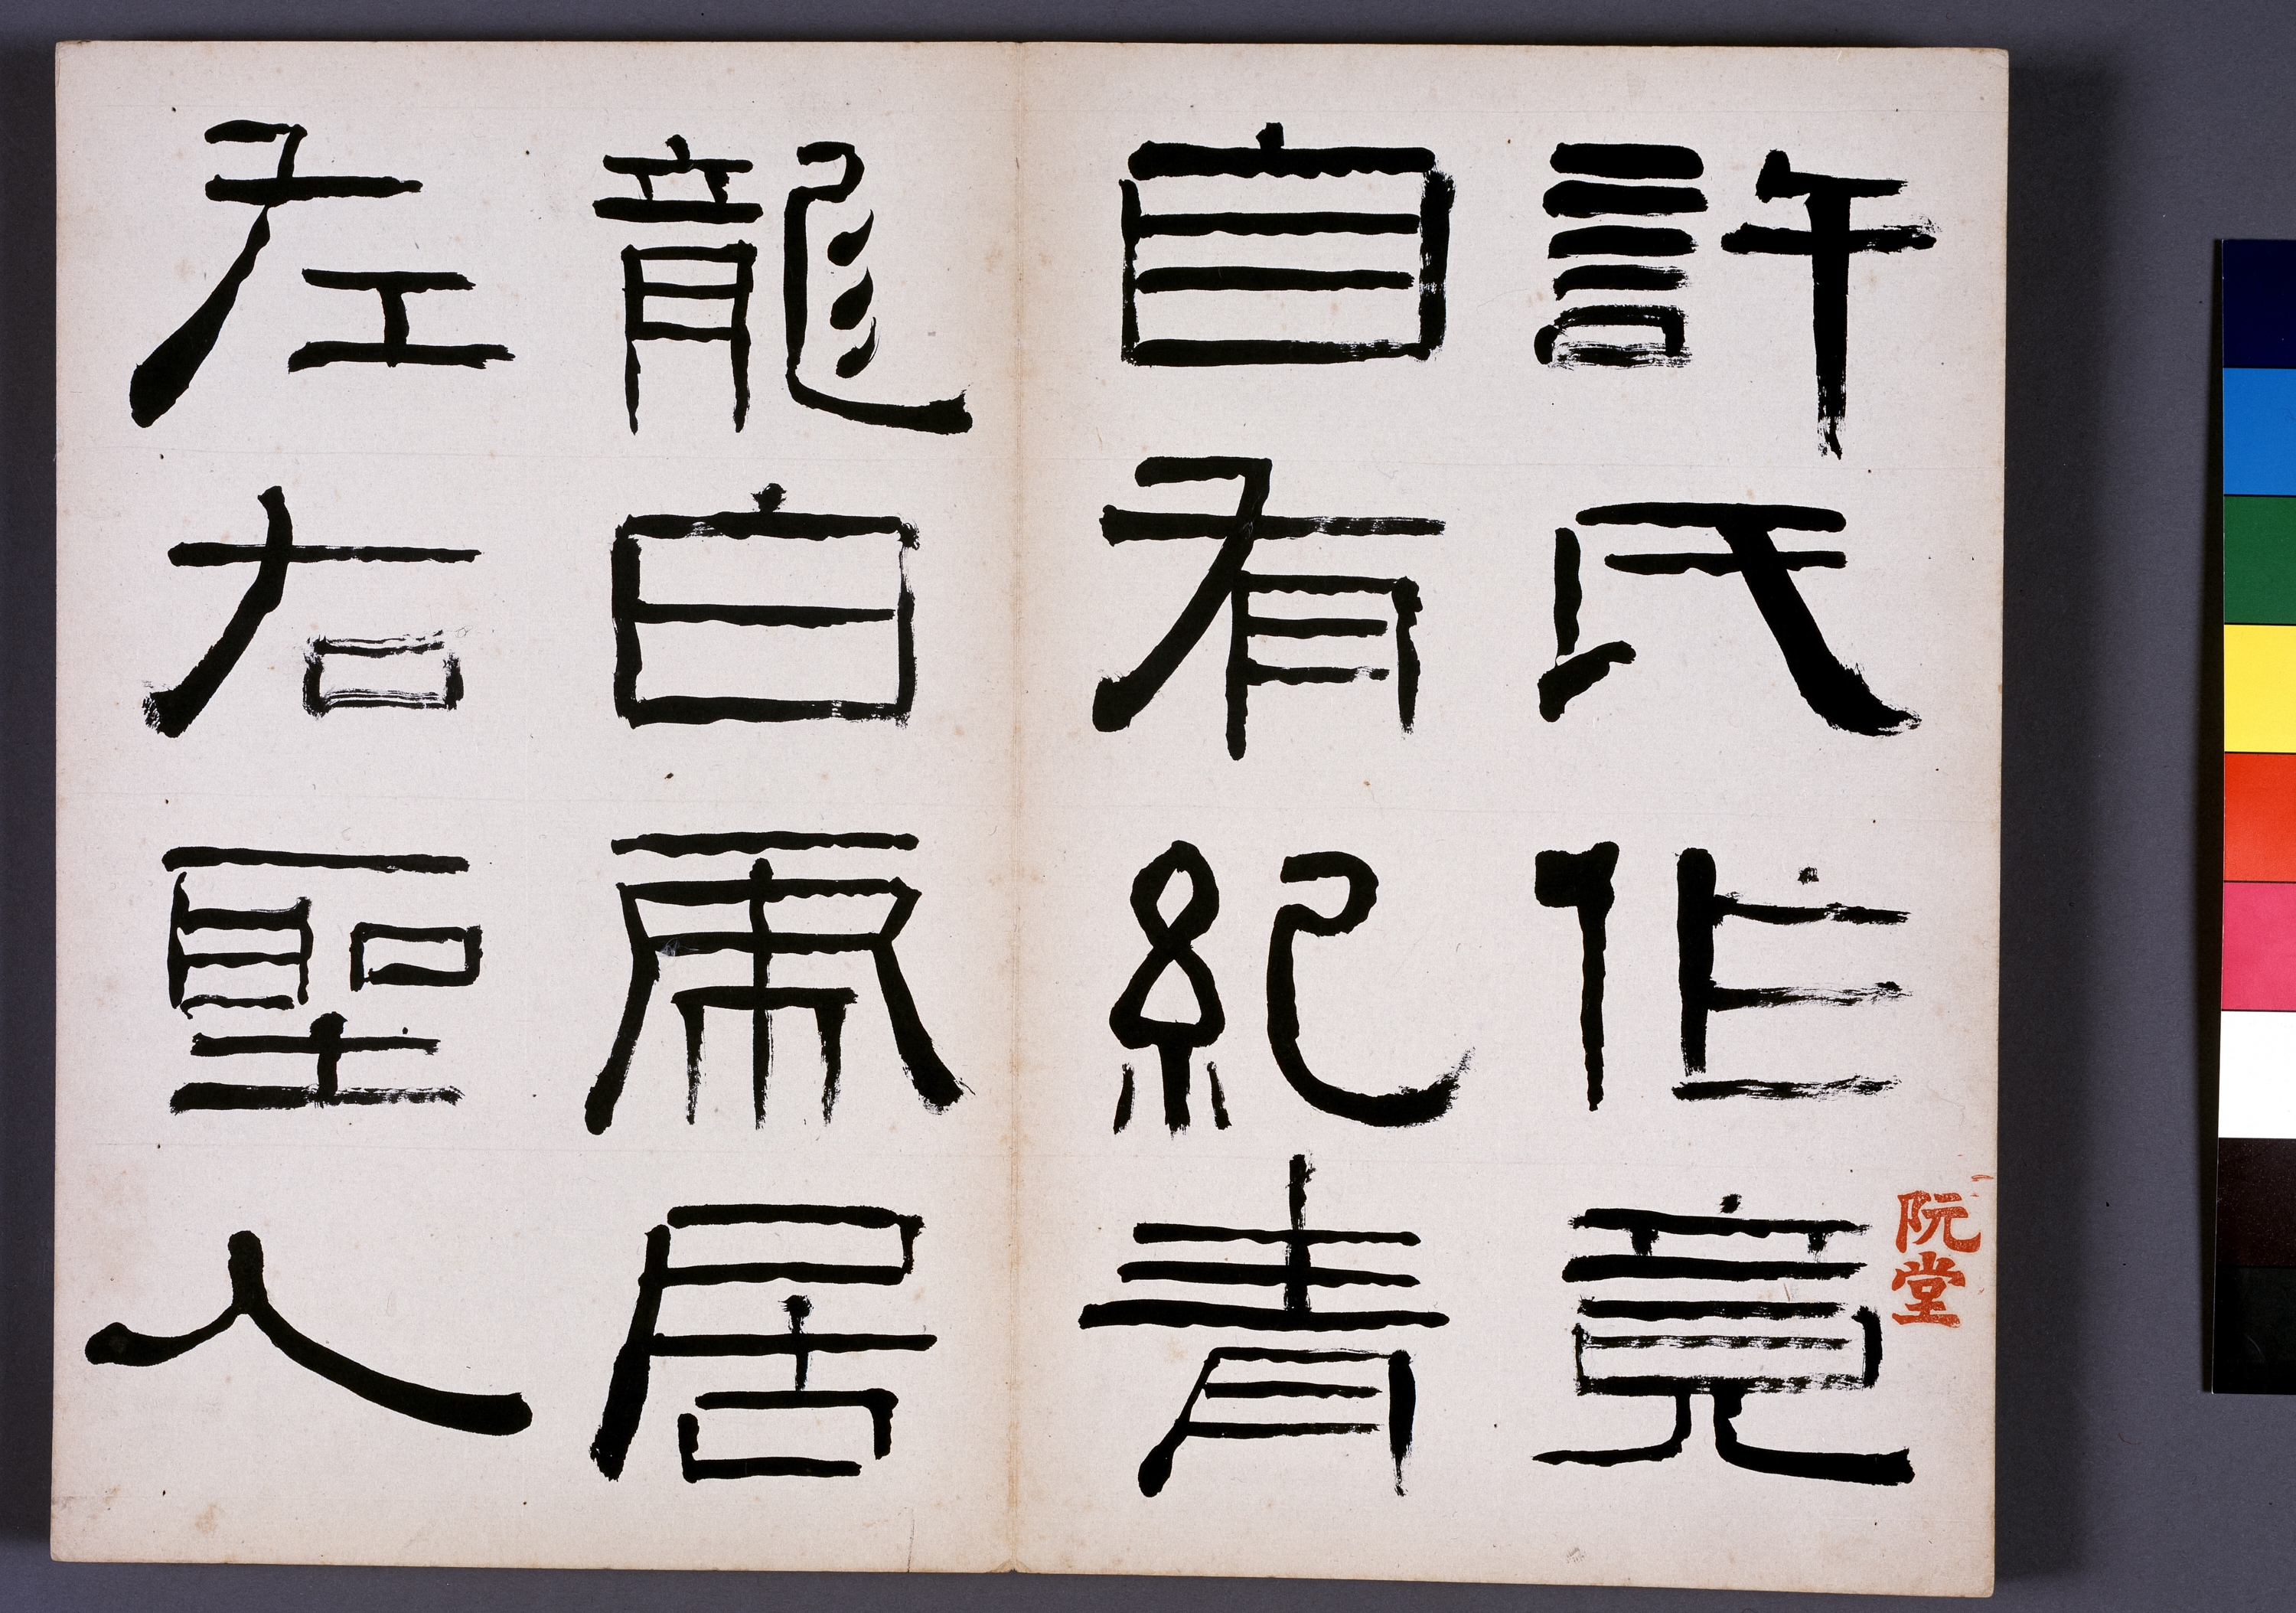 許氏作竟
自有紀青
龍白虎居
左右聖人
阮堂